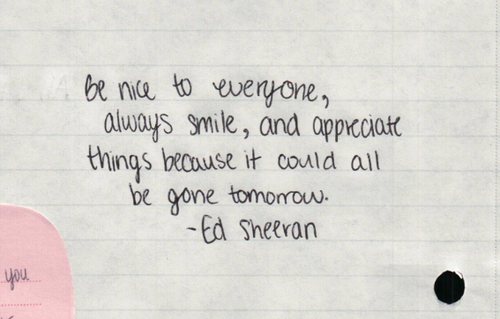 Be nice to everyone,
always smile, and appreciate
things because it could all
be gone tomorrow.
-Ed Sheeran
you